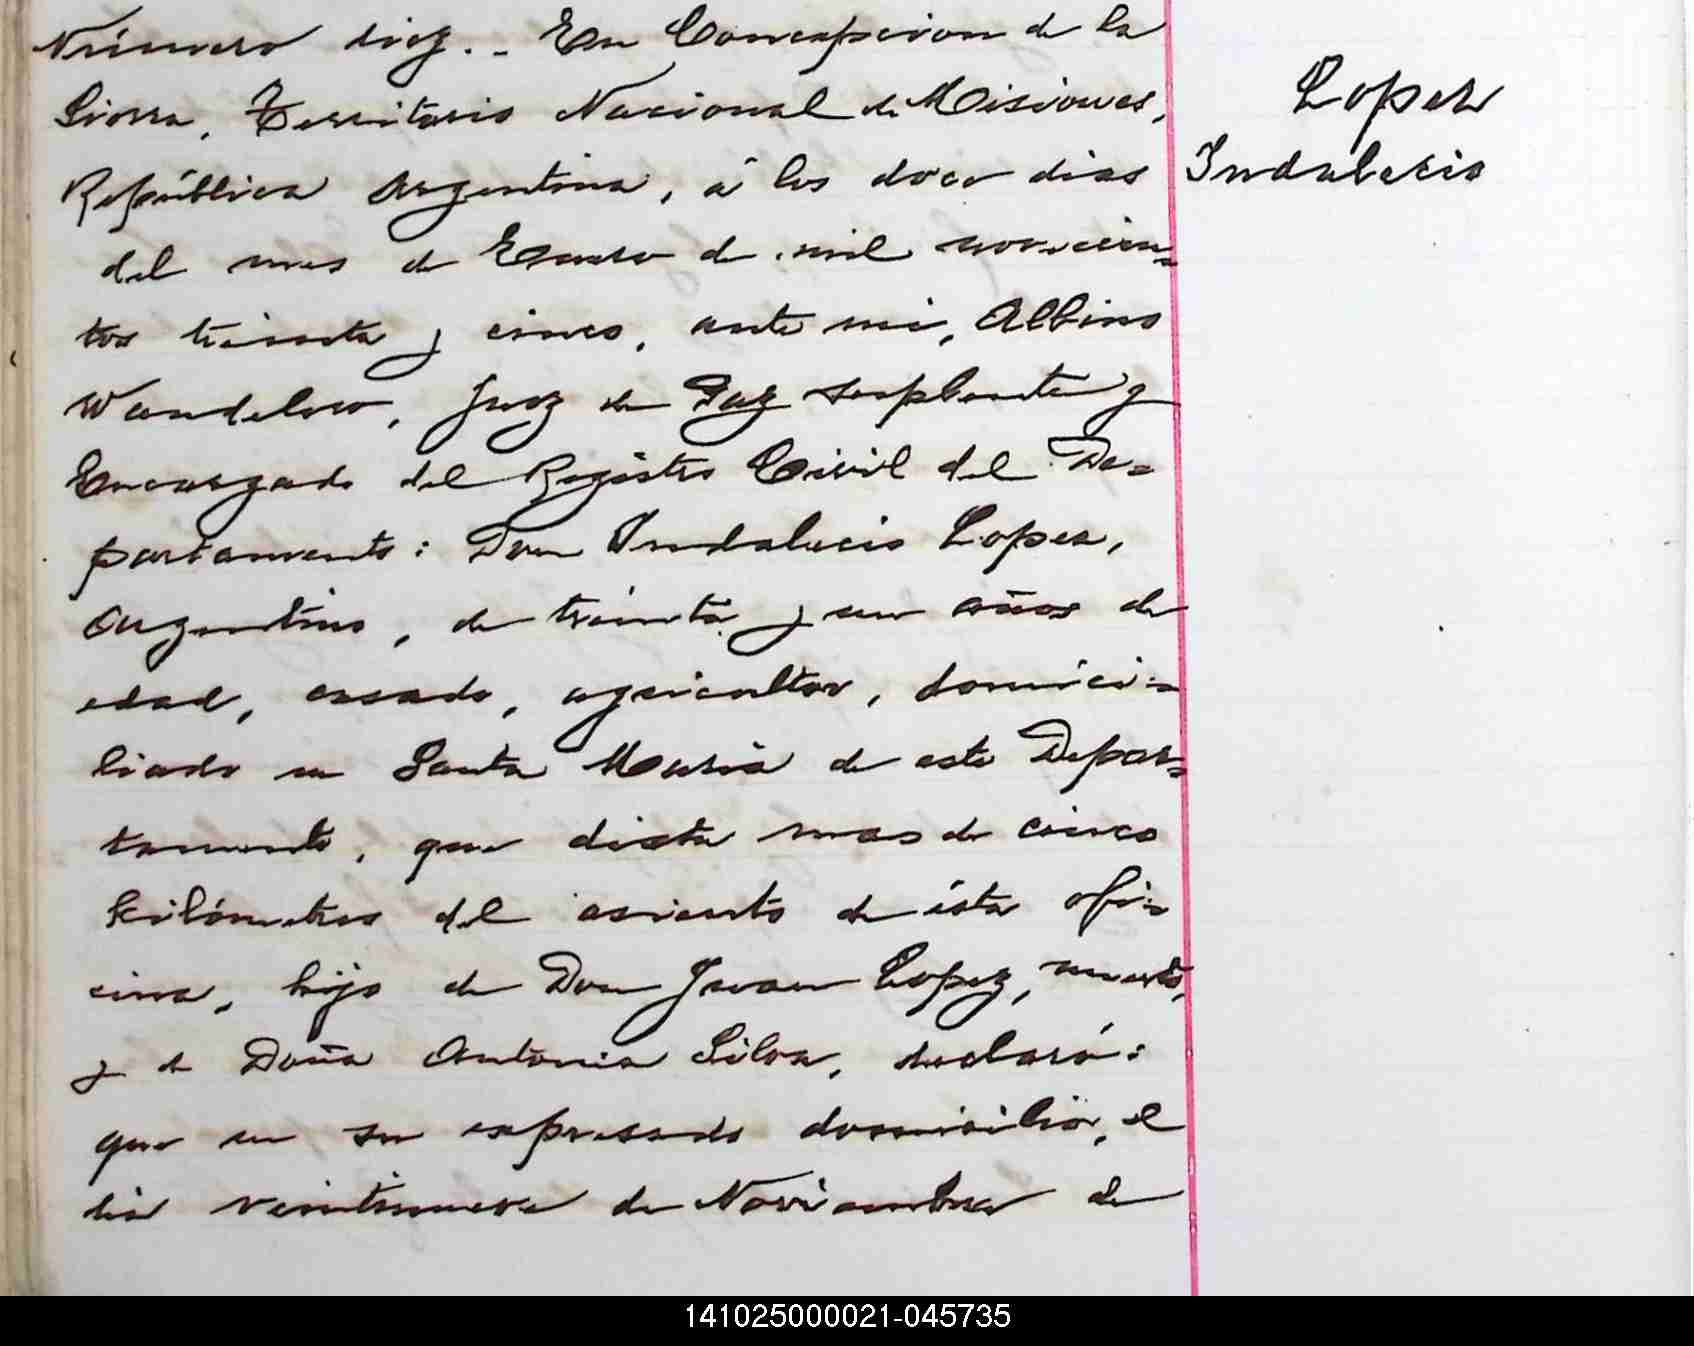 Número diez.- En Concepcion de la
Sierra, Territorio Nacional de Misiones,
República Argentina, á los doce dias
del mes de Enero de mil novecien-
tos treinta y cinco, ante mi, Albino
Juez de Paz suplente y
Encargado del Registro Civil del De-
partamento: Don Indalecio Lopez,
argentino, de treinta y un años de
edad, casado, agricultor, domici-
liado en Santa Maria de este Depar-
tamento, que dista mas de cinco
kilómetros del asiento de ésta ofi-
cina, hijo de Don Juan Lopez, muerto,
y de Doña Antonia Silva, declaró:
que en su expresado domicilio, el
dia veintinueve de Noviembre de
Lopez
Indalecio
141025000021-045735